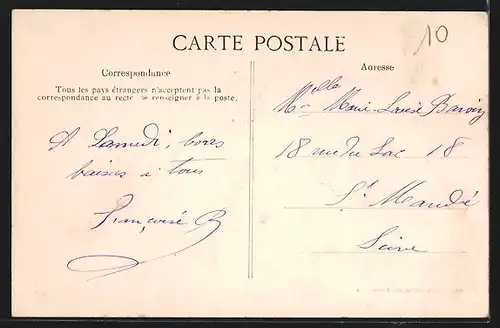 10
CARTE POSTALE
Correspondance
Tous les pays étrangers n'acceptent pas la
correspondance au recto, se renseigner à la poste.
A Samedi, bons
baisers à tous
Françoise B
Adresse
Melle Marie-Louise
18 rue du Lac 18
St Mandé
Seine